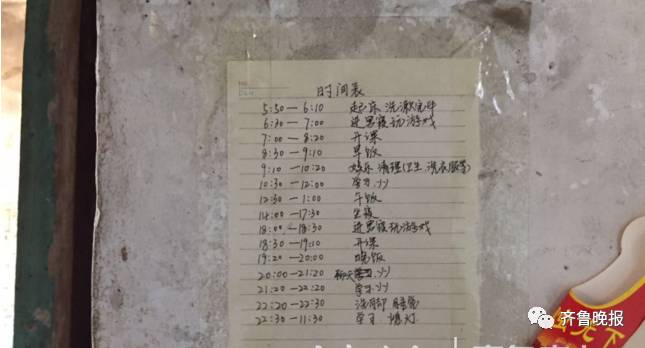 时间表
5:50 — 6:10 起床 洗漱完毕
6:30 — 7:00 进男寝玩游戏
7:00 — 8:20 开课
8:30 — 9:10 早饭
9:10 — 10:20 娱乐 清理(卫生、洗衣服等)
10:30 — 12:00 学习
12:30 — 1:00 午饭
14:00 — 17:30
18:00 — 18:30 进男寝玩游戏
18:30 — 19:10 开课
19:20 — 20:00 晚饭
20:00 — 21:20 聊天
21:20 — 22:20 学习
22:20 — 22:30 洗脚 睡觉
22:30 — 11:30 学习 熄灯
齐鲁晚报